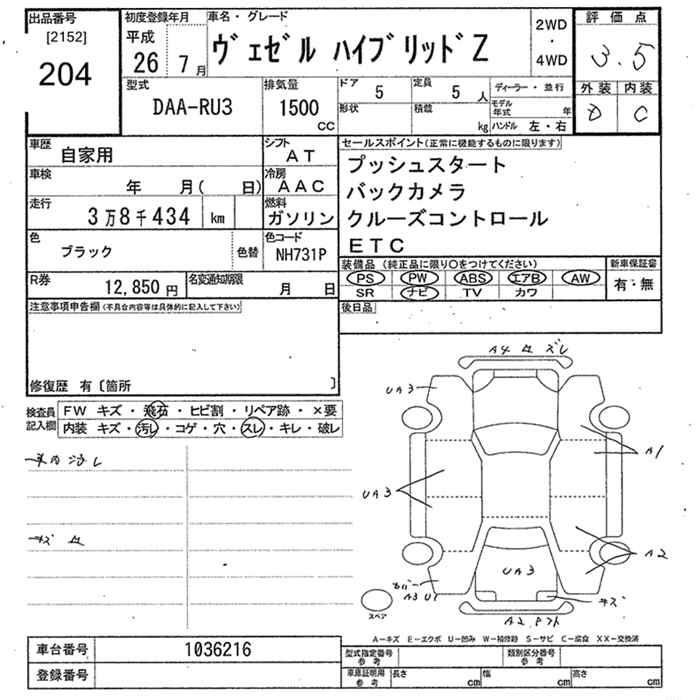 出品番号 初度登録年月 車名・グレード 2WD・4WD 評価点
[2152] 平成
204 26年 7月 ヴェゼル ハイブリッドZ 3.5
型式 排気量 ドア 定員 ディーラー・並行 外装 内装
DAA-RU3 1500 CC 5 5人 モデル年式 年 D C
形状 積載 kg ハンドル 左・右
車歴 自家用 シフト AT セールスポイント(正常に機能するものに限ります)
プッシュスタート
車検 年 月( 日) 冷房 AAC バックカメラ
走行 3万8千434 km 燃料 ガソリン クルーズコントロール
色 ブラック 色替 色コード NH731P ETC
R券 12,850円 名変通知期限 月 日 装備品(純正品に限り○をつけてください) 新車保証書
PS PW ABS エアB AW 有・無
SR ナビ TV カワ
注意事項申告欄(不具合内容等は具体的に記入して下さい) 後日品
修復歴 有〔箇所 〕
検査員記入欄 FW キズ・飛石・ヒビ割・リペア跡・×要
内装 キズ・汚レ・コゲ・穴・スレ・キレ・破レ
A4 ズレ
UA3
A1
UA3
A2
UA3
カバー A3 U1
キズ
スペア
A2
A-キズ E-エクボ U-凹み W-補修跡 S-サビ C-腐食 XX-交換済
車台番号 1036216 型式指定番号 参考 類別区分番号 参考
登録番号 車庫証明用 参考 長さ cm 幅 cm 高さ cm